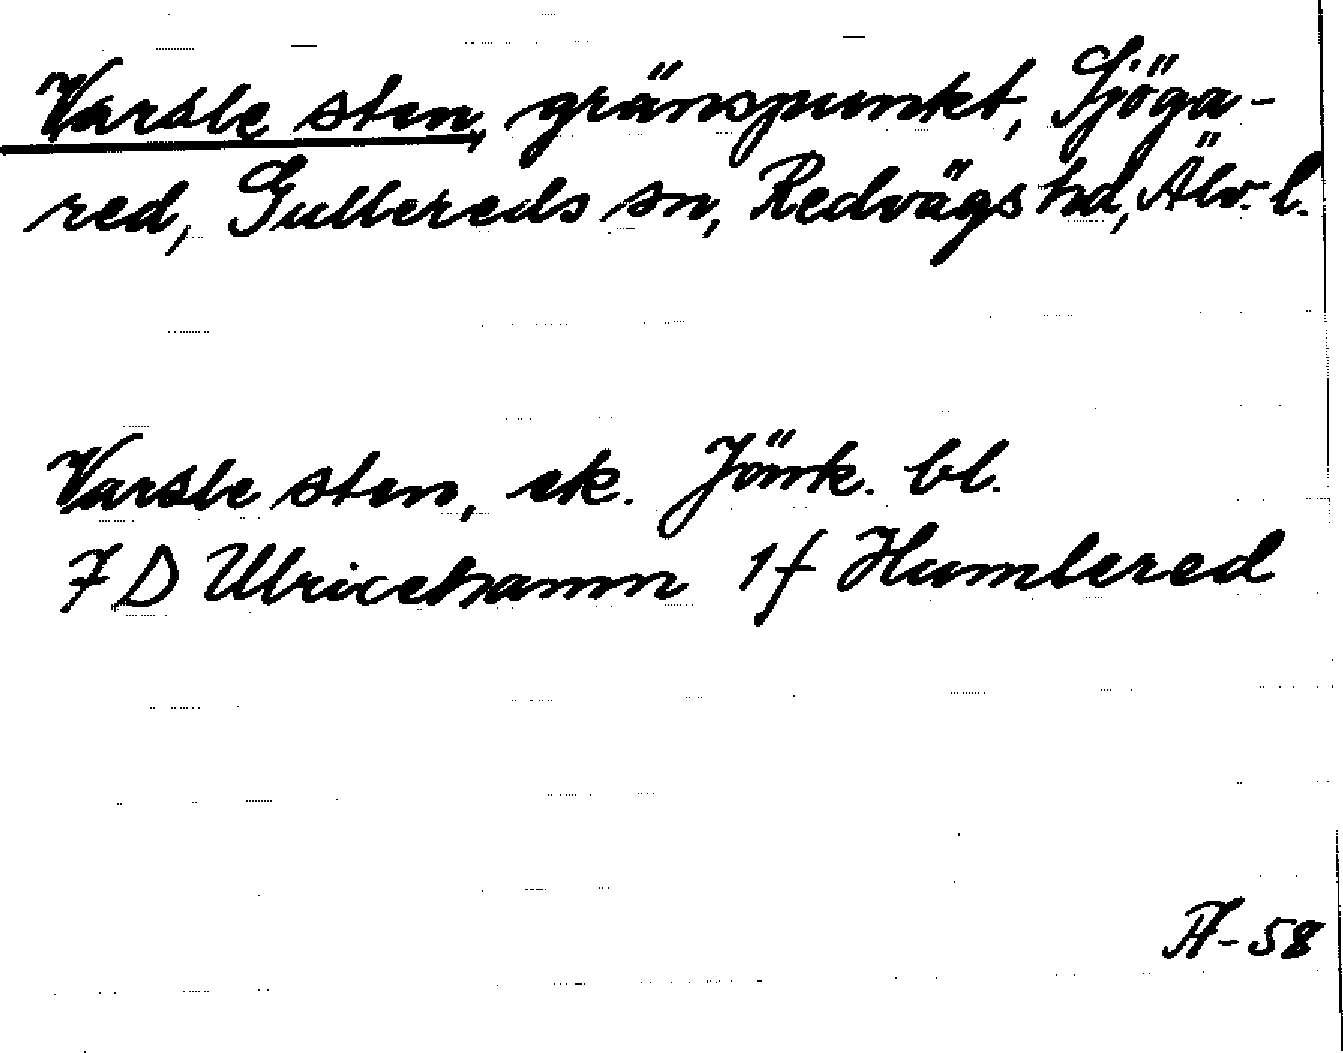 Varsle sten, gränspunkt, Sjöga-
red, Gullereds sn, Redvägs hd, Älv. l.
Varsle sten, ek. Jönk. bl.
7 D Ulricehamn 1f Humlered
ÅF-58